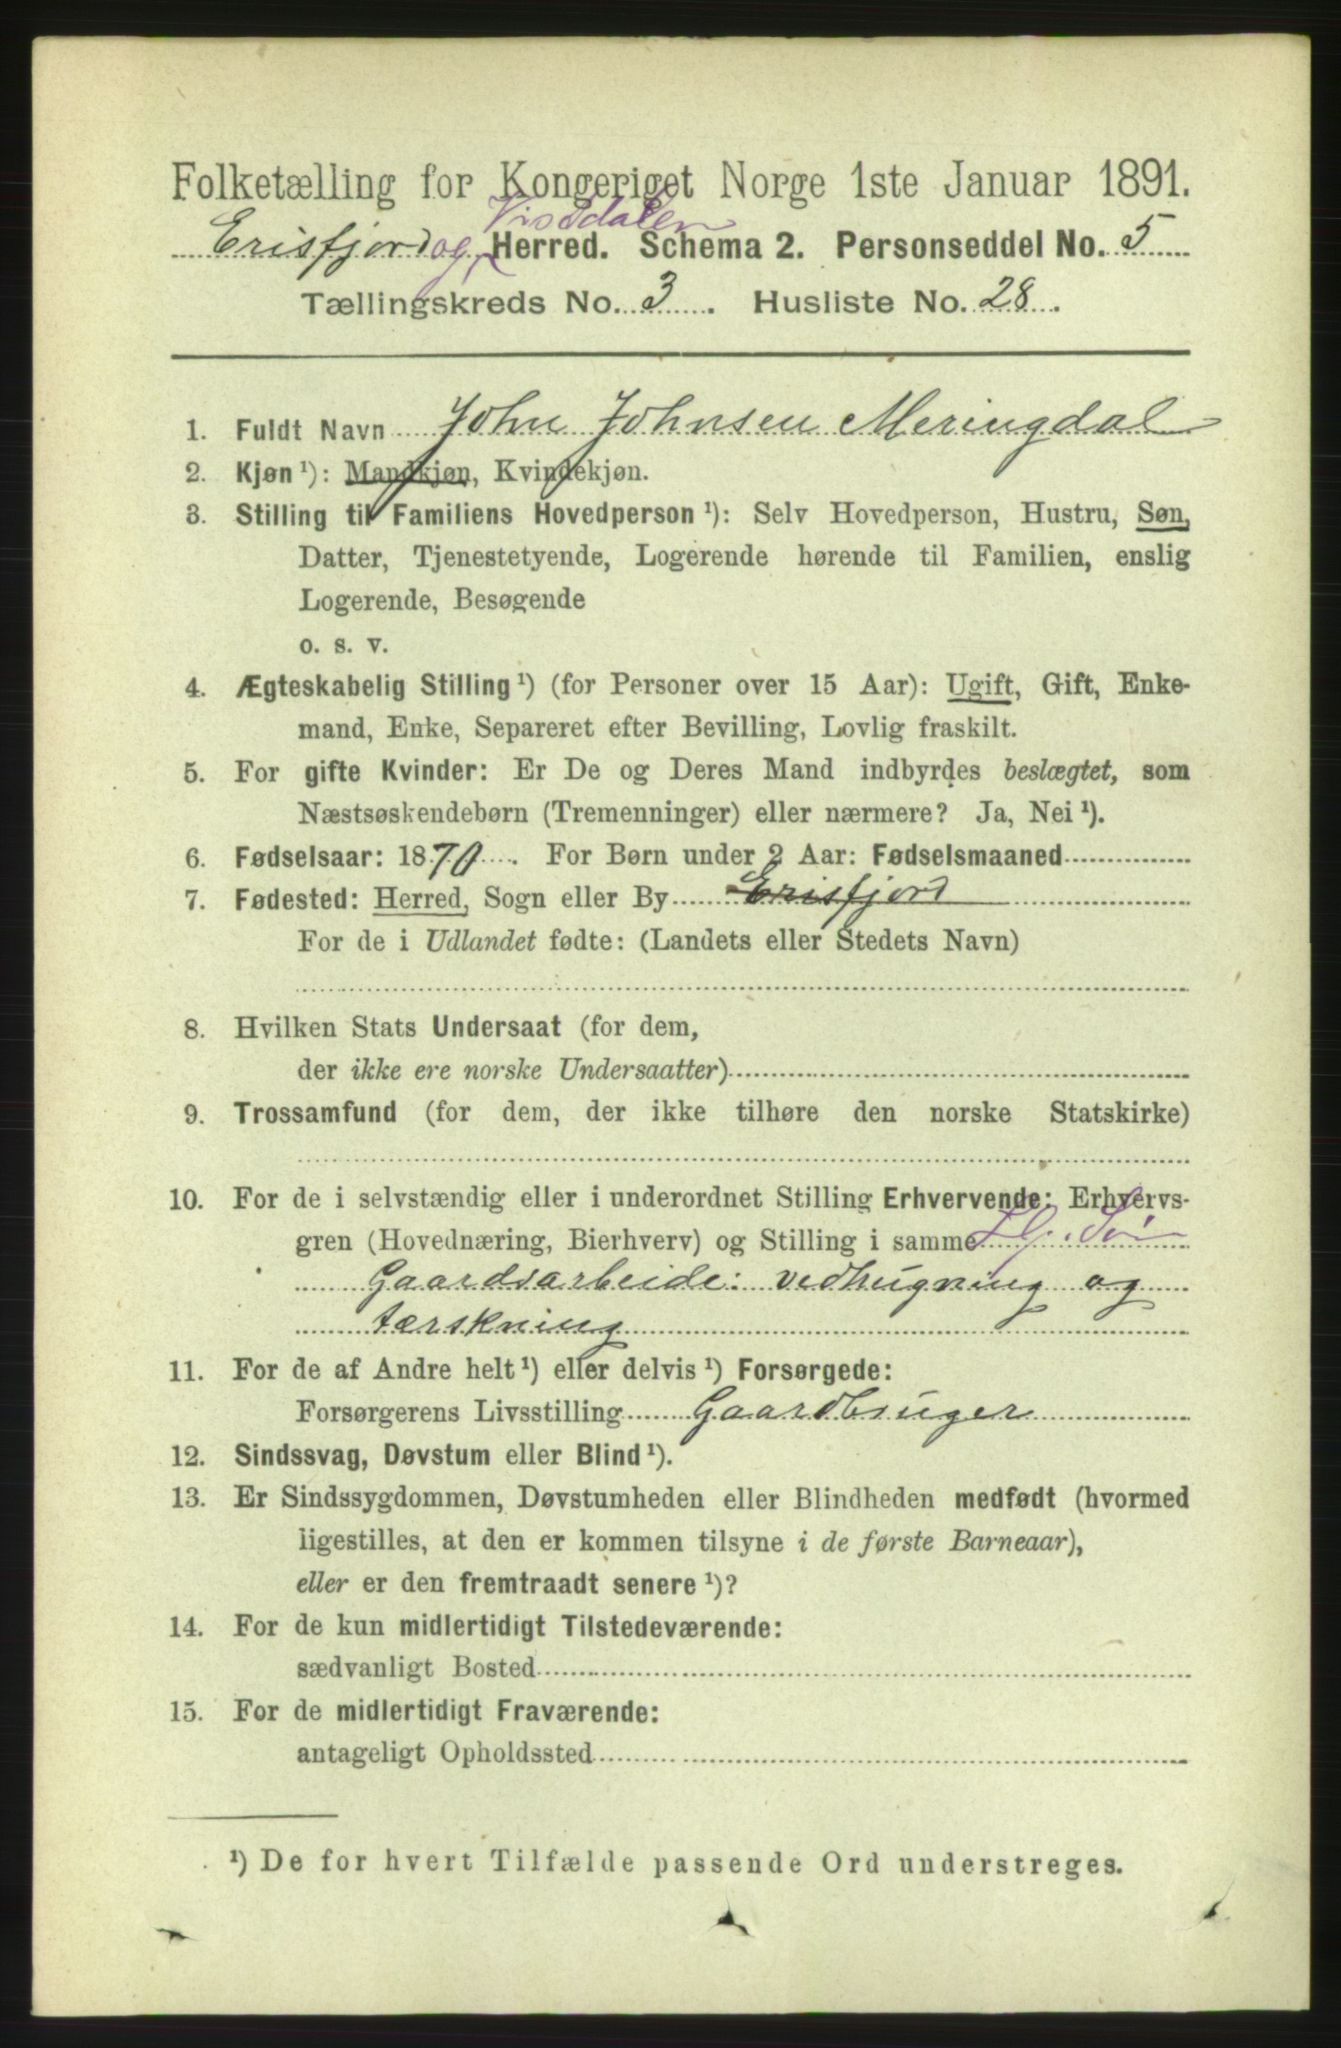 Folketælling for Kongeriget Norge 1ste Januar 1891.
Vistdalen
Erisfjord og Herred. Schema 2. Personseddel No. 5
Tællingskreds No. 3. Husliste No. 28.
1. Fuldt Navn John Johnsen Meringdal
2. Kjøn ¹): Mandkjøn, Kvindekjøn.
3. Stilling til Familiens Hovedperson ¹): Selv Hovedperson, Hustru, Søn,
Datter, Tjenestetyende, Logerende hørende til Familien, enslig
Logerende, Besøgende
o. s. v.
4. Ægteskabelig Stilling ¹) (for Personer over 15 Aar): Ugift, Gift, Enke-
mand, Enke, Separeret efter Bevilling, Lovlig fraskilt.
5. For gifte Kvinder: Er De og Deres Mand indbyrdes beslægtet, som
Næstsøskendebørn (Tremenninger) eller nærmere? Ja, Nei ¹).
6. Fødselsaar: 1870. For Børn under 2 Aar: Fødselsmaaned
7. Fødested: Herred, Sogn eller By Erisfjord
For de i Udlandet fødte: (Landets eller Stedets Navn)
8. Hvilken Stats Undersaat (for dem,
der ikke ere norske Undersaatter)
9. Trossamfund (for dem, der ikke tilhøre den norske Statskirke)
10. For de i selvstændig eller i underordnet Stilling Erhvervende: Erhvervs-
gren (Hovednæring, Bierhverv) og Stilling i samme
Gaardsarbeide: vedhugning og
tærskning
11. For de af Andre helt ¹) eller delvis ¹) Forsørgede:
Forsørgerens Livsstilling Gaardbruger
12. Sindssvag, Døvstum eller Blind ¹).
13. Er Sindssygdommen, Døvstumheden eller Blindheden medfødt (hvormed
ligestilles, at den er kommen tilsyne i de første Barneaar),
eller er den fremtraadt senere ¹)?
14. For de kun midlertidigt Tilstedeværende:
sædvanligt Bosted
15. For de midlertidigt Fraværende:
antageligt Opholdssted
¹) De for hvert Tilfælde passende Ord understreges.